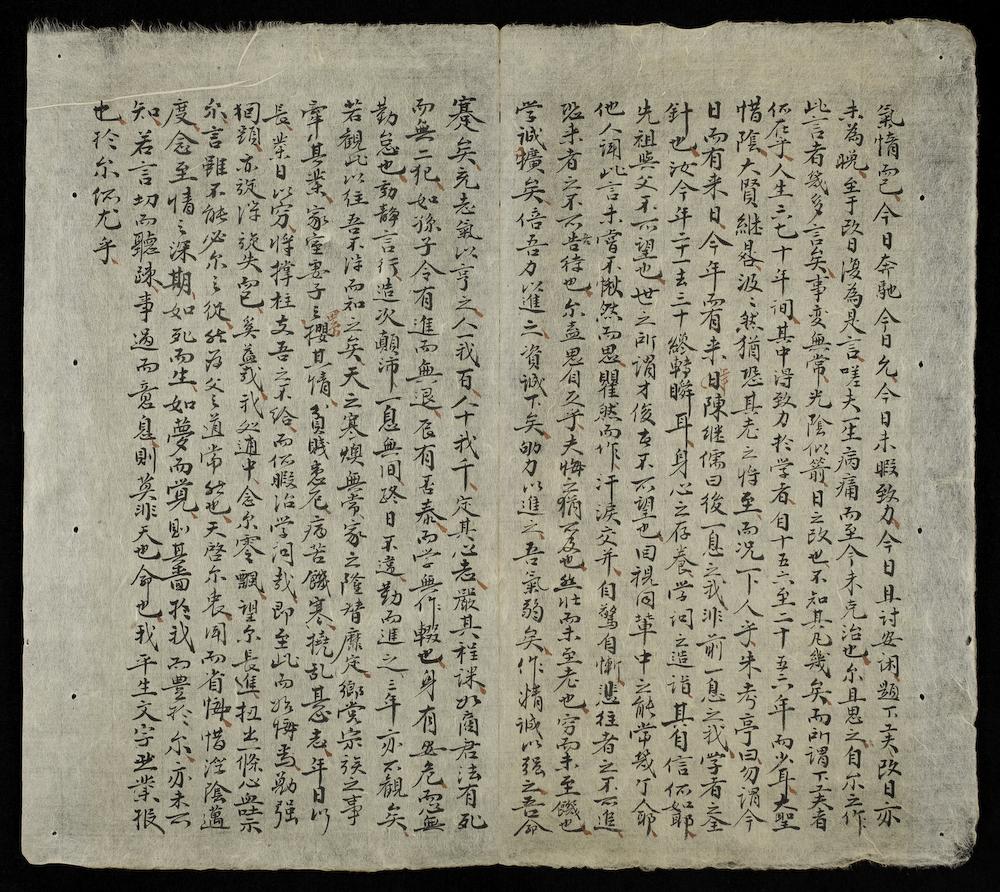 氣惰而已今日奔馳今日允今日未暇致力今日且討安閑題下工夫改日亦
未為晚至于改日復為是言嗟夫一生病痛而至今未克治也尔且思之自尔之作
此言者幾多言矣事変無常光陰似箭日之改也不知其凡幾矣而所謂下工夫者
何在乎人生六七十年间其中得致力於学者自十五六至二十五六年而少耳大聖
惜陰大賢継晷汲汲然猶恐其老之将至而況下人乎朱考亭曰勿謂今
日而有来日今年而有来日陳継儒曰後一息之我非前一息之我学者之
針也汝今年二十一去三十終轉瞬耳身心之存養学问之造诣其自信何如耶
先祖與父不可望也世之所謂才俊者不可望也回視同軰中之能常幾行人耶
他人闻此言未嘗不愀然而思瞿然而作汗淚交并自驚自慚悲往者之不可進
恐来者之不吾待也尔盍思自反乎夫悔之猶可及也然壮而未至老也穷而未至饑也
学诚壙矣倍吾力以進之資诚下矣劬力以進之吾氣弱矣作精诚以强之吾命
蹇矣充志氣以亨之人一我百人十我千定其心志嚴其程课如商君法有死
而無二犯如孫子令有進而無退辰有否泰而学無作輟也身有安危而志無
勤怠也動静言行造次顛沛一息無间終日不違勤而進之三年亦不觀矣
若觀此以往吾不得而知之矣天之寒燠無常家之隆替靡定鄉党宗族之事
牽其業家室妻子之攖其情貧賤患厄病苦饑寒撓乱其志老年日以
長業日以穷将撑柱支吾之不给而何暇治学问哉即至此而始悔焉勵强
囘頭亦旋得旋失而已奚益哉我処適中念尔零飄望尔長進扭出一條心血噐
尔言雖不能必尔之從然為父之道常然也天啓尔衷闻而省悔惜淫陰邁
度念至情之深期如死而生如夢而覺則其嗇於我而豊於尔亦未可
知若言切而聽疎事過而意息則莫非天也命也我平生文字业業报
也於尔何尤乎